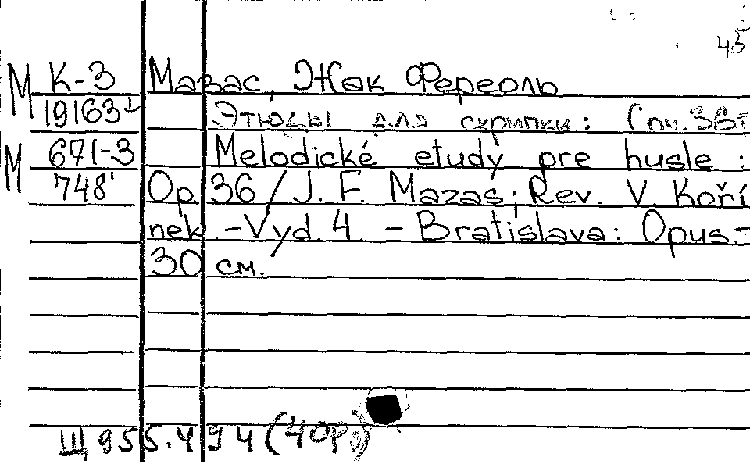 45
М К-3 Мазас, Жак Фереоль
19163 Этюды для скрипки:
М 671-3 Melodické etudy pre husle :
748 Op. 36 / J. F. Mazas; Rev. V. Koří
nek - Vyd. 4. - Bratislava: Opus-
30 см.
Щ 955.494 (4